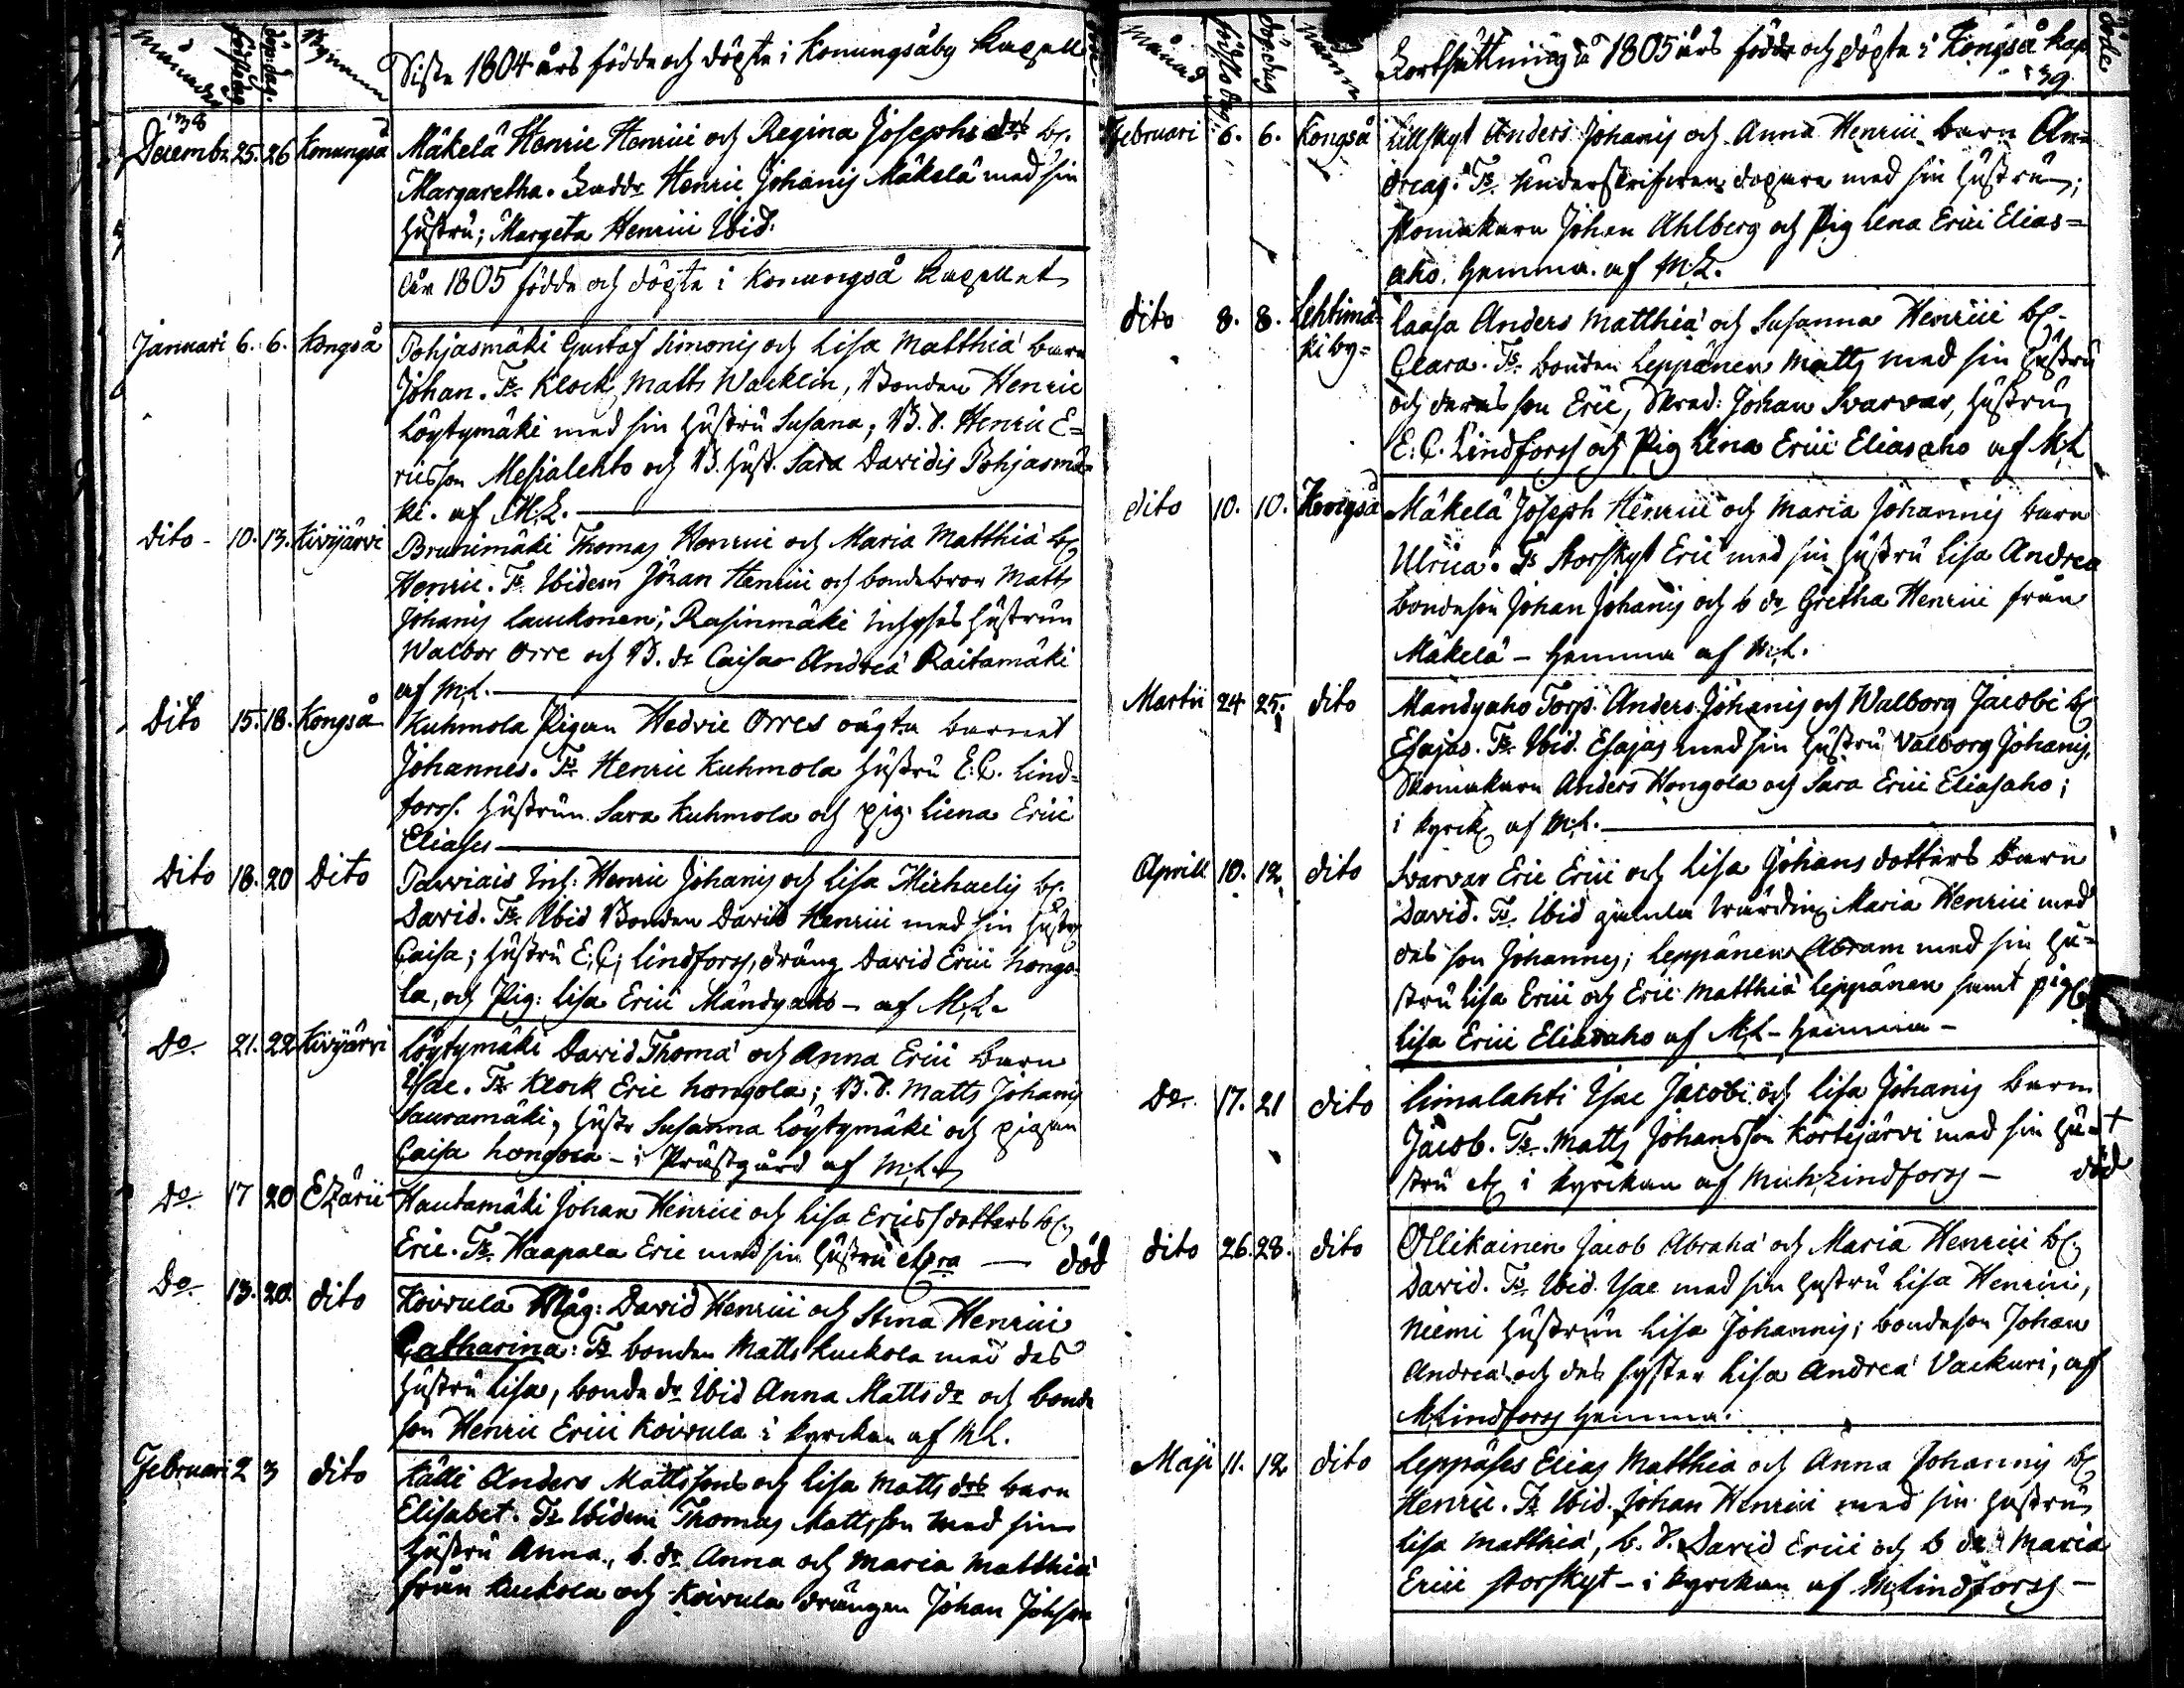 Månader födslodag döp.dag. Bynamn Siste 1804 års födde och döpte i Konungsåby Kapell
138
Decembr 25. 26 Konungså Mäkelä Henric Henrici och Regina Josephi drs b.
Margaretha. Fadd. Henric Johanis Mäkelä med sin
hustru; Margeta Henrici Ibid.
År 1805 födde och döpte i Konungså Kapellet
Januari 6. 6. Kongså Pohjasmäki Gustaf Simonis och Lisa Matthiæ barn
Johan. Ts. Klock. Matts Wacklin, Bonden Henric
Löytymäki med sin hustru Susana; B. d. Henric E=
ricsson Mesialehto och B. hust. Sara Davidis Pohjasmä=
ki. af M:L.
dito 10. 13. Kivijärvi Brunimäki Thomas Henrici och Maria Matthiæ b.
Henric. Ts. Ibidem Johan Henrici och bondebror Matts
Johanis Lauckonen; Rasinmäki Inhyses hustrun
Walbor Orre och B. dr Caisa Andreæ Raitamäki
af M:L.
Dito 15. 18. Kongså Kuhmola Pigan Hedvic Orres oägta barnet
Johannes. Ts. Henric Kuhmola hustru E:C. Lind=
forss. hustrun Sara Kuhmola och pig. Liena Erici
Eliases
Dito 18. 20 Dito Parviais Inh: Henric Johanis och Lisa Michaelis b.
David. Ts. Ibid Bonden David Henrici med sin hustru
Caisa; hustru E:C; Lindforss, dräng David Erici Hongo=
la, och Pig: Lisa Erici Mändyaho - af M:L.
Do. 21. 22 Kivijärvi Löytymäki David Thomæ och Anna Erici barn
Isac. Ts. Klock Eric Hongola; B. d. Matts Johanis
Sauramäki, hustr Susanna Löytymäki och pigan
Caisa Hongola - i Prästgård af M:L.
Do. 17 20 Hautamäki Johan Henrici och Lisa Ericsdotters b.
Eric. Ts. Haapala Eric med sin hustru — död
Do. 13. 20. dito Koivula Måg: David Henrici och Stina Henrici
Catharina: Ts. bonden Matts Kuckola med des
hustru Lisa, bonde dr Ibid Anna Matts dr och bonde
son Henric Erici Koivula i kyrckan af M:L.
Februari 2 3 dito Källi Anders Mattssons och Lisa Matts drs barn
Elisabet. Ts. Ibidem Thomas Mattsson med sin
hustru Anna., b. dr Anna och Maria Matthiæ
från Kuckola och Koivula drängen Johan Johson
Månad födslodag Döp.dag Fortsättning å 1805 års födde och döpte i Kongså kap. döde
139
Februari 6. 6. Kongså Lillskyt Anders Johanis och Anna Henrici barn An=
dreas. Ts. Underskrifven dopare med sin hustru;
skomakare Johan Ahlberg och Pig Lena Erici Elias=
aho. hemma. af M:L.
dito 8. 8. Lehtimä=
ki by= Laasa Anders Matthiæ och Susanna Henrici b.
Clara. Ts. bonden Leppänen Matts med sin hustru
och deras son Eric, Skrad: Johan Svarvar, hustru
E:C. Lindforss och Pig Lena Erici Eliasaho af M:L
dito 10. 10. Kongså Mäkelä Joseph Henrici och Maria Johannis barn
Ulrica. Ts Storskyt Eric med sin hustru Lisa Andreæ
bondeson Johan Johanis och b dr Gretha Henrici från
Mäkelä - hemma af M:L.
Martii 24 25. dito Mandyaho Torp. Anders Johanis och Walborg Jacobi b.
Esajas. Ts. Ibid. Esajas med sin hustru Valborg Johanis,
Skomakare Anders Hongola och Sara Erici Eliasaho;
i kyrck. af M:L.
Aprill 10. 12 dito Svarvar Eric Erici och Lisa Johans dotters barn
David. Ts. Ibid gamla wärdin: Maria Henrici med
des son Johannes; Leppänen Abram med sin hu=
stru Lisa Erici och Eric Matthiæ Leppänen samt pig:
Lisa Erici Eliasaho af M:L - hemma -
Do. 17. 21 dito Limalahti Isac Jacobi och Lisa Johanis barn
Jacob. Ts. Matts Johansson Kortejärvi med sin hu= +
stru i kyrckan af Mich: Lindforss - död
dito 26. 28. dito Ollikainen Jacob Abrahæ och Maria Henrici b.
David. Ts. Ibid. Isac med sin hustru Lisa Henrici,
Niemi hustrun Lisa Johannis; bondeson Johan
Andreæ och des syster Lisa Andreæ Vackuri, af
M:Lindforss hemma.
Maji 11. 12 dito Leppäses Elias Matthiæ och Anna Johannis b.
Henric. Ts. Ibid. Johan Henrici med sin hustru
Lisa Matthiæ, b. d. David Erici och b dr Maria
Erici Storskyt - i kyrckan af M:Lindforss -